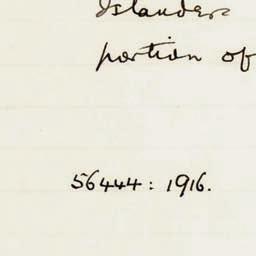 Islanders
portion of
56444: 1916.